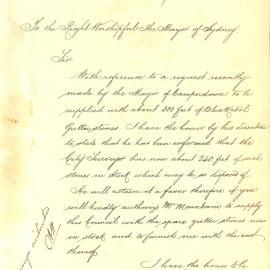 To the Right Worshipful The Mayor of Sydney
Sir
With reference to a request recently
made by the Mayor of Camperdown to be
supplied with about 300 feet of Blue Metal
Gutter stones. I have the honor by his direction
to state that he has been informed that the
City Surveyor has now about 240 feet of such
stones in stock which may be so disposed of
He will esteem it a favor therefore if you
will kindly authorise Mr to supply
this Council with the spare gutter stones now
in stock and to furnish me with the cost
thereof
I have the honor to be